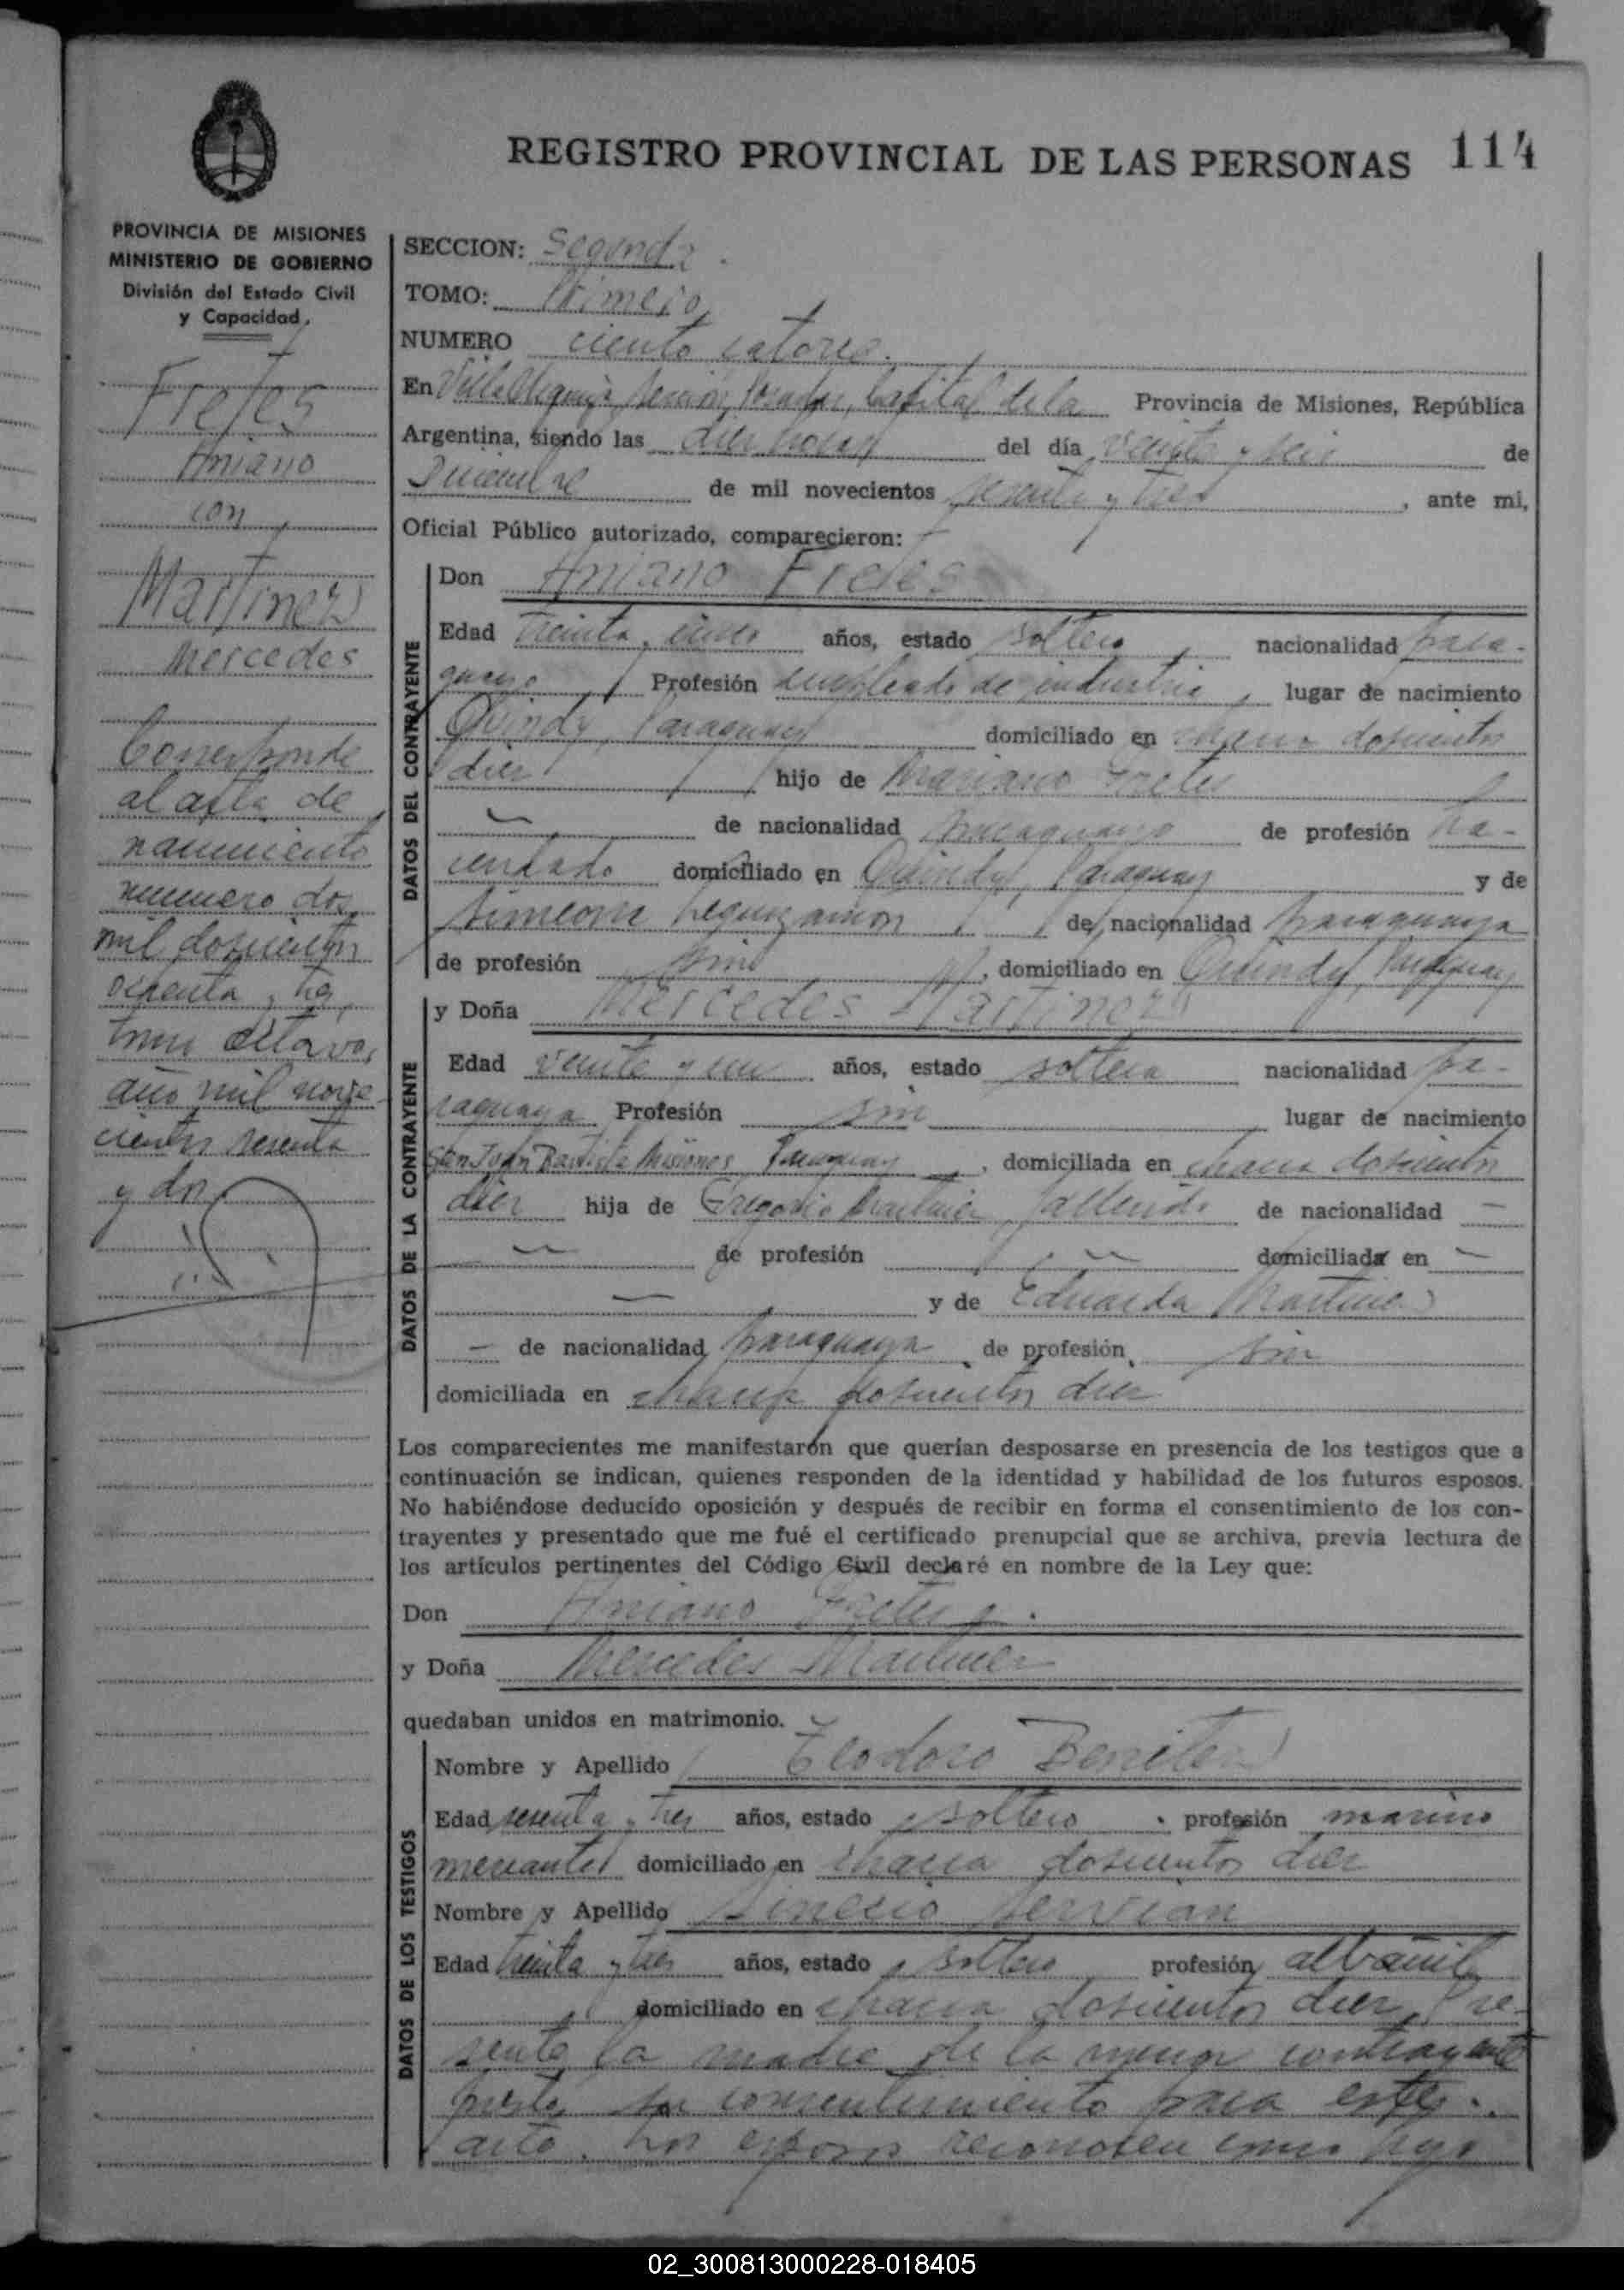 REGISTRO PROVINCIAL DE LAS PERSONAS 114
PROVINCIA DE MISIONES
MINISTERIO DE GOBIERNO
División del Estado Civil
y Capacidad
Fretes
Aniano
con
Martinez
Mercedes
Corresponde
al acta de
nacimiento
numero dos
mil doscientos
y tres
tomo octavo,
año mil nove-
cientos sesenta
y dos
SECCION: Segunda.
TOMO: Primero
NUMERO ciento catorce.
En Villa Urquiza, sección Posadas, Capital de la Provincia de Misiones, República
Argentina, siendo las diez horas del día veinte y seis de
Diciembre de mil novecientos sesenta y tres, ante mi,
Oficial Público autorizado, comparecieron:
DATOS DEL CONTRAYENTE
Don Aniano Fretes
Edad treinta y cinco años, estado soltero, nacionalidad para-
guaya Profesión empleado de industria, lugar de nacimiento
Quindy, Paraguay domiciliado en chacra doscientos
diez hijo de Mariano Fretes
— de nacionalidad paraguayo de profesión ha-
cendado domiciliado en Quindy, Paraguay y de
Simeona Leguizamon, de nacionalidad paraguaya
de profesión sin, domiciliado en Quindy, Paraguay
DATOS DE LA CONTRAYENTE
y Doña Mercedes Martinez
Edad veinte y un años, estado soltera nacionalidad pa-
raguaya Profesión sin lugar de nacimiento
San Juan Bautista Misiones Paraguay, domiciliada en chacra doscientos
diez hija de Gregorio Martinez fallecido de nacionalidad —
— de profesión — domiciliada en —
— y de Eduarda Martinez
— de nacionalidad paraguaya, de profesión, sin
domiciliada en chacra doscientos diez
Los comparecientes me manifestarón que querían desposarse en presencia de los testigos que a
continuación se indican, quienes responden de la identidad y habilidad de los futuros esposos.
No habiéndose deducido oposición y después de recibir en forma el consentimiento de los con-
trayentes y presentado que me fué el certificado prenupcial que se archiva, previa lectura de
los artículos pertinentes del Código Civil declaré en nombre de la Ley que:
Don Aniano Fretes y.
y Doña Mercedes Martinez
quedaban unidos en matrimonio.
DATOS DE LOS TESTIGOS
Nombre y Apellido Teodoro Benitez
Edad sesenta y tres años, estado soltero, profesión marino
mercante domiciliado en chacra doscientos diez
Nombre y Apellido Sinecio Servian
Edad treinta y tres años, estado soltero profesión albañil
domiciliado en chacra doscientos diez, Pre-
sente la madre de la menor contrayente
presta su consentimiento para este
acto. Los esposos reconocen como hijo
02_300813000228-018405